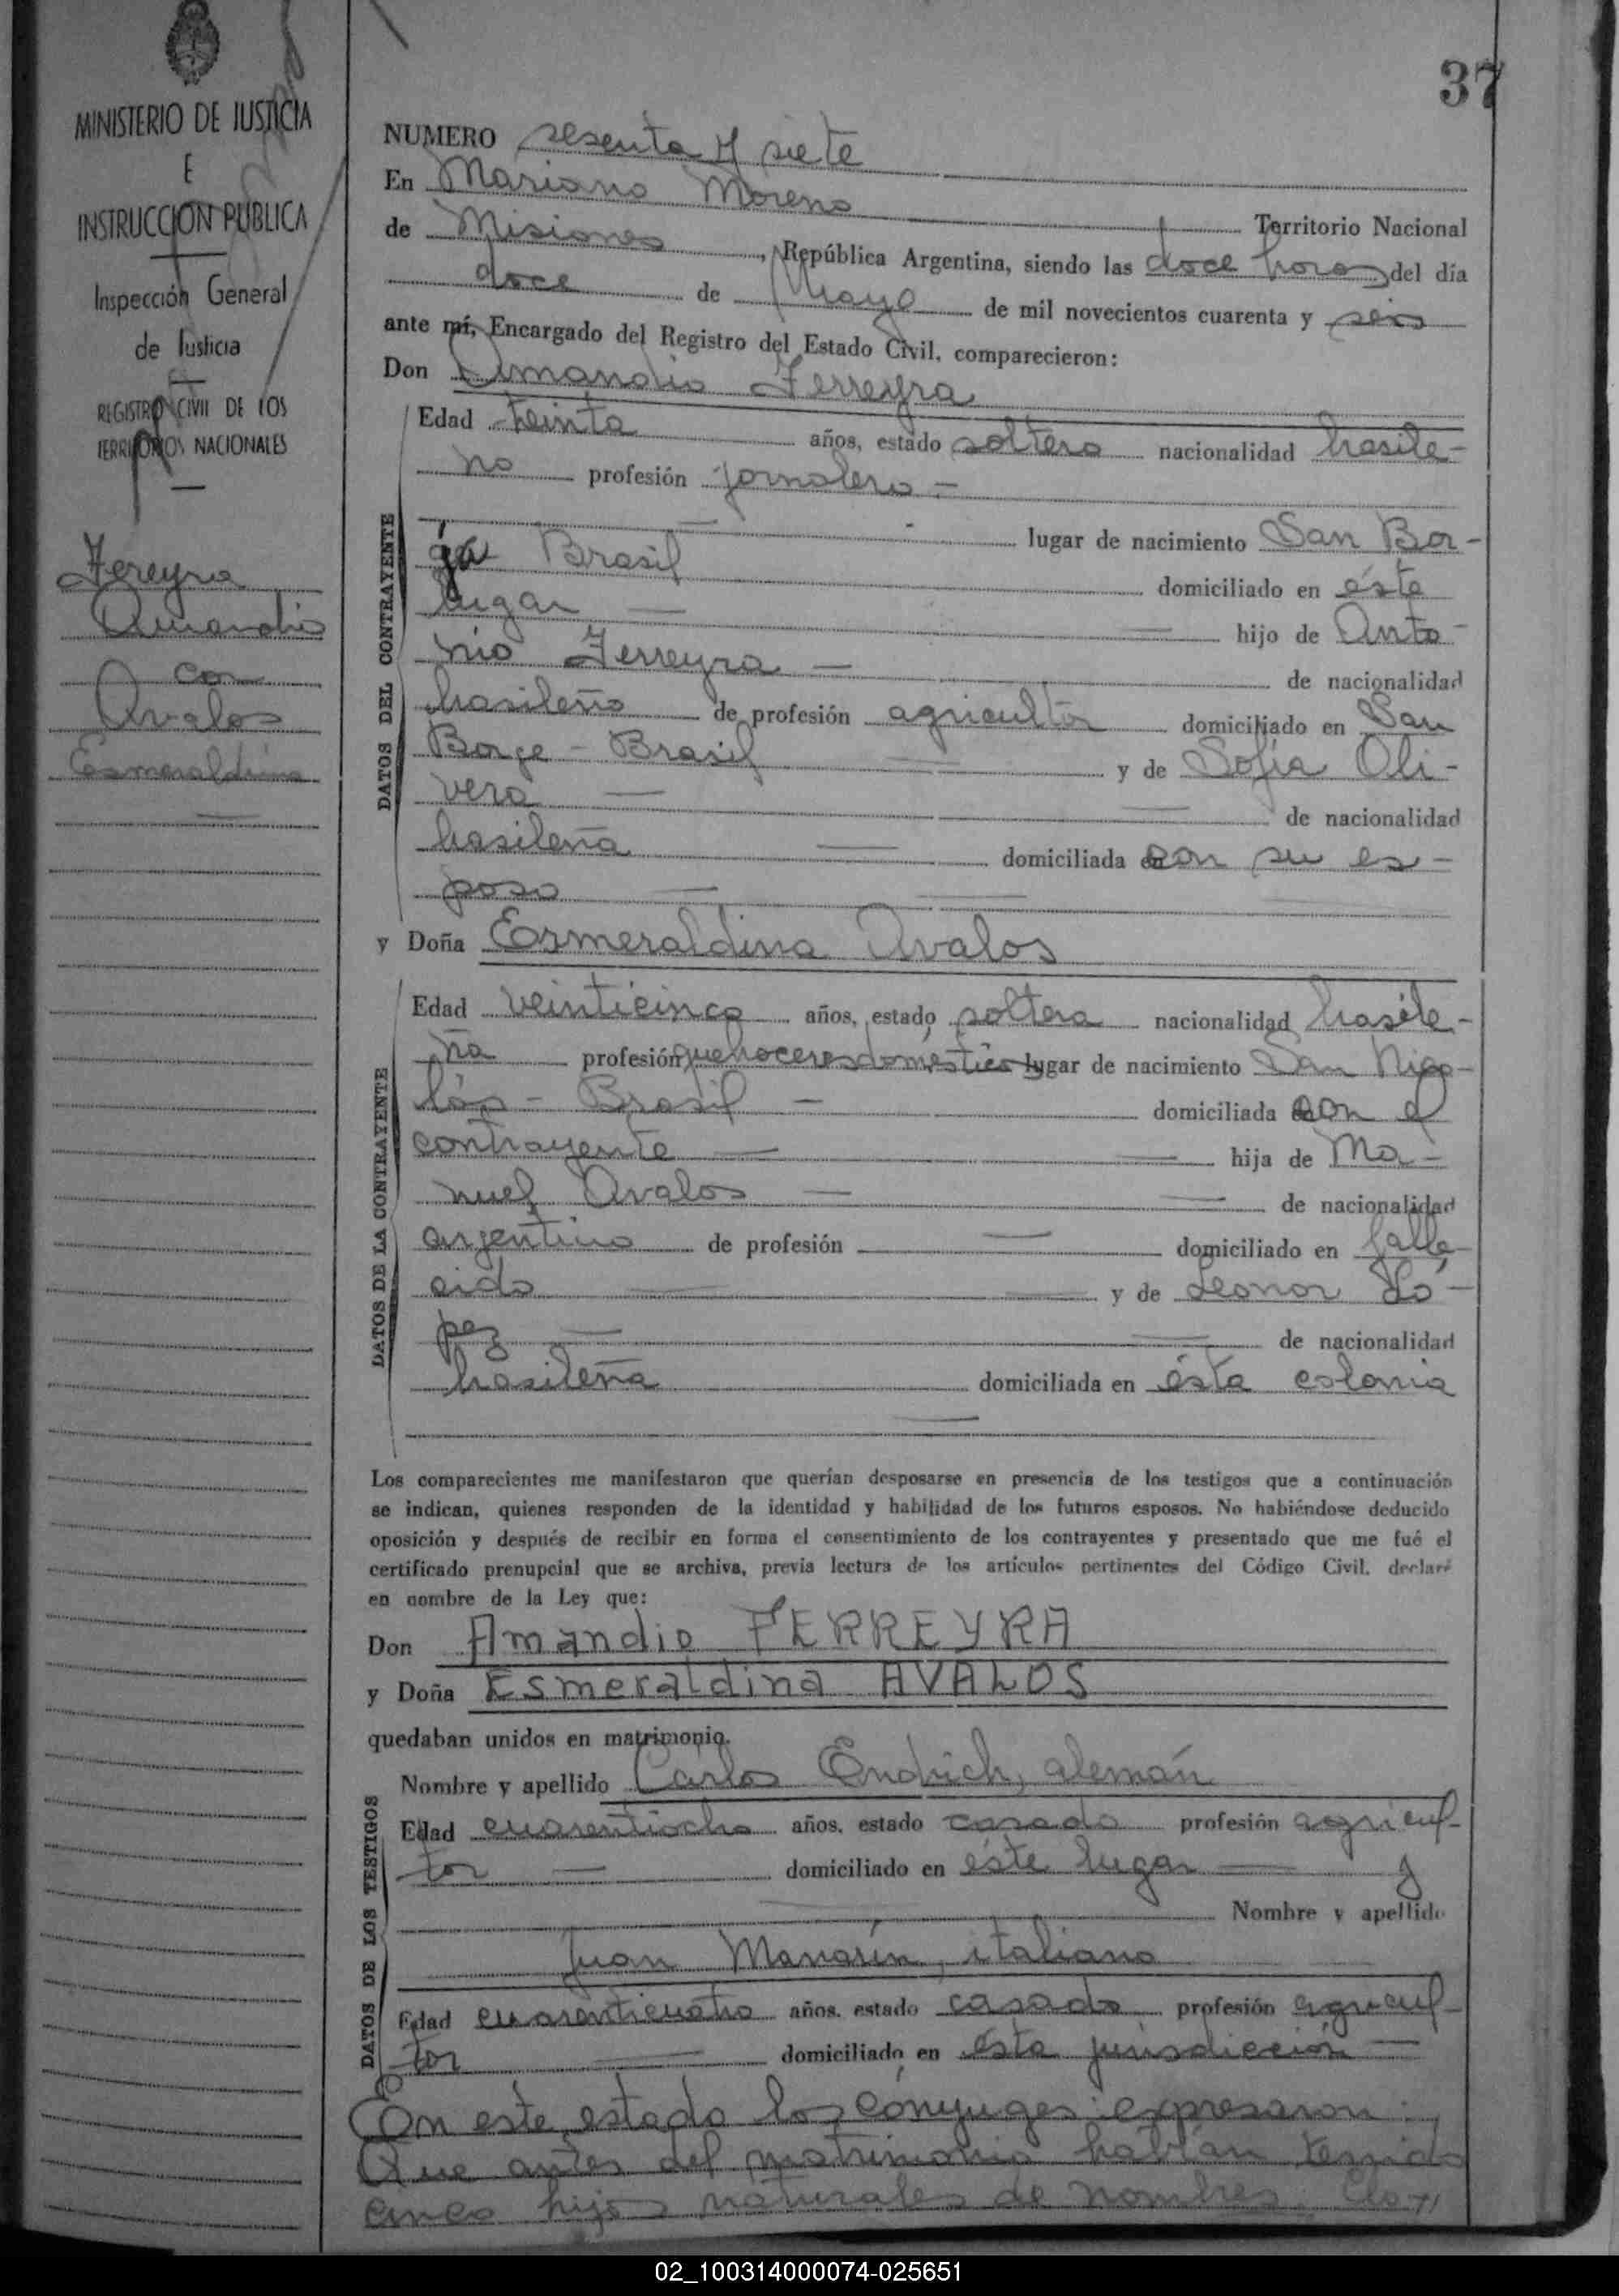 37
MINISTERIO DE JUSTICIA
E
INSTRUCCION PUBLICA
Inspección General
de Justicia
REGISTRO CIVIL DE LOS
TERRITORIOS NACIONALES
Fereyra
Amandio
con
Avalos
Esmeraldina
NUMERO sesenta y siete
En Mariano Moreno Territorio Nacional
de Misiones, República Argentina, siendo las doce horas del día
doce de Mayo de mil novecientos cuarenta y seis
ante mí, Encargado del Registro del Estado Civil, comparecieron:
Don Amandio Ferreyra
DATOS DEL CONTRAYENTE
Edad treinta años, estado soltero nacionalidad brasile-
ño profesión jornalero -
lugar de nacimiento San Bor-
ja Brasil domiciliado en éste
lugar — hijo de Anto-
nio Ferreyra — de nacionalidad
brasileño de profesión agricultor domiciliado en San
Borge - Brasil y de Sofía Oli-
vera — de nacionalidad
brasileña domiciliada con su es-
poso
y Doña Esmeraldina Avalos
DATOS DE LA CONTRAYENTE
Edad veinticinco años, estado soltera nacionalidad brasile-
ña profesión quehaceres domésticos lugar de nacimiento San Nico-
lás - Brasil - domiciliada con el
contrayente — hija de Ma-
nuel Avalos — de nacionalidad
argentino de profesión — domiciliado en falle-
cido — y de Leonor Ló-
pez — de nacionalidad
brasileña domiciliada en ésta colonia
Los comparecientes me manifestaron que querían desposarse en presencia de los testigos que a continuación
se indican, quienes responden de la identidad y habilidad de los futuros esposos. No habiéndose deducido
oposición y después de recibir en forma el consentimiento de los contrayentes y presentado que me fué el
certificado prenupcial que se archiva, previa lectura de los artículos pertinentes del Código Civil, declaré
en nombre de la Ley que:
Don Amandio FERREYRA
y Doña Esmeraldina AVALOS
quedaban unidos en matrimonio.
DATOS DE LOS TESTIGOS
Nombre y apellido Carlos Endrich, alemán
Edad cuarentiocho años, estado casado profesión agricul-
tor — domiciliado en éste lugar — y
Nombre y apellido
Juan Manarín, italiano
Edad cuarenticuatro años, estado casado profesión agricul-
tor — domiciliado en ésta jurisdicción —
En este estado los cónyuges expresaron:
Que antes del matrimonio habían tenido
cinco hijos naturales de nombres
02_100314000074-025651